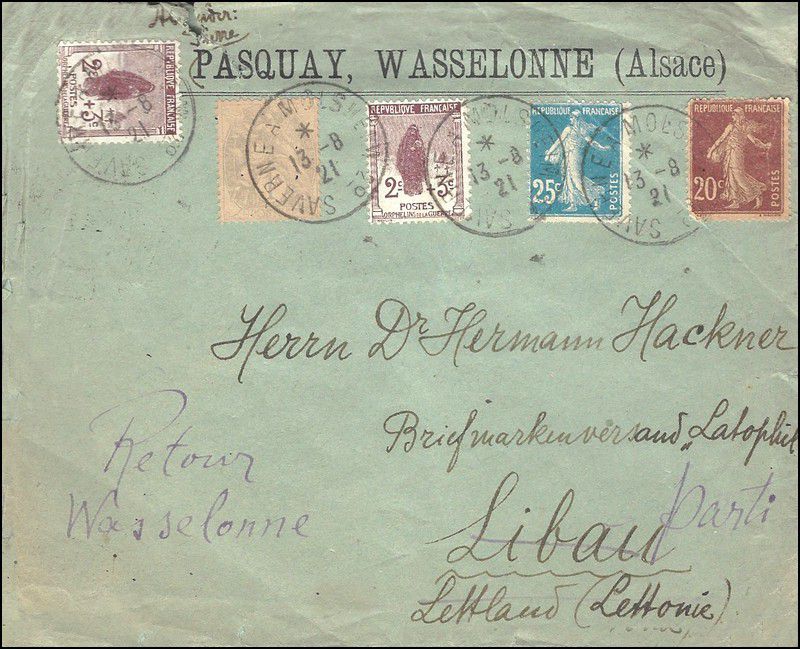 PASQUAY, WASSELONNE (Alsace)
REPUBLIQUE FRANÇAISE
2c +3c
POSTES
ORPHELINS DE LA GUERRE
SAVERNE A MOLSHEIM
*
13 -8
21
REPUBLIQUE FRANÇAISE
2c +3c
POSTES
ORPHELINS DE LA GUERRE
13 -8
21
REPUBLIQUE FRANÇAISE
25c
POSTES
13 -8
21
REPUBLIQUE FRANÇAISE
20c
POSTES
Herrn Dr Hermann Hackner
Briefmarkenversand „Latophil
Retour
Wasselonne
Libau
Parti
Lettland (Lettonie)